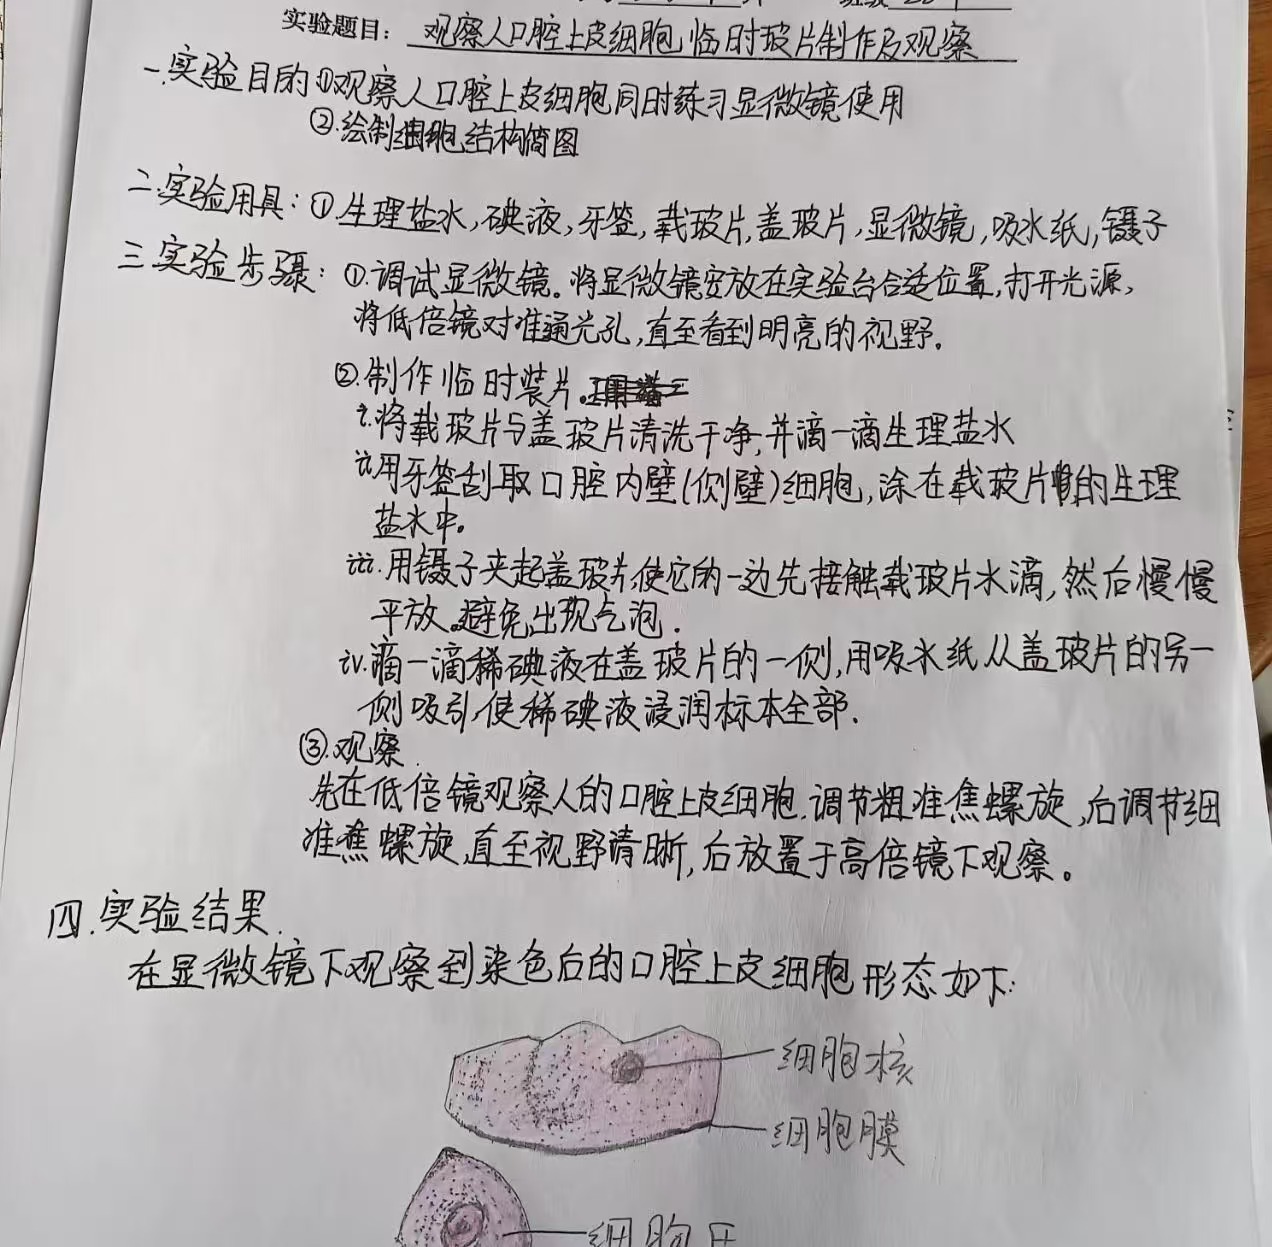 实验题目：观察人口腔上皮细胞临时玻片制作及观察
一.实验目的①观察人口腔上皮细胞同时练习显微镜使用
②.绘制细胞结构简图
二.实验用具：①生理盐水,碘液,牙签,载玻片,盖玻片,显微镜,吸水纸,镊子
三实验步骤：①.调试显微镜。将显微镜安放在实验台合适位置,打开光源,
将低倍镜对准通光孔,直至看到明亮的视野.
②.制作临时装片.
i.将载玻片与盖玻片清洗干净,并滴一滴生理盐水
ii.用牙签刮取口腔内壁(侧壁)细胞,涂在载玻片的生理
盐水中。
iii.用镊子夹起盖玻片,使它的一边先接触载玻片水滴,然后慢慢
平放.避免出现气泡.
iv.滴一滴稀碘液在盖玻片的一侧,用吸水纸从盖玻片的另一
侧吸引,使稀碘液浸润标本全部.
③.观察.
先在低倍镜观察人的口腔上皮细胞.调节粗准焦螺旋,后调节细
准焦螺旋,直至视野清晰,后放置于高倍镜下观察。
四.实验结果.
在显微镜下观察到染色后的口腔上皮细胞形态如下:
细胞核
细胞膜
细胞